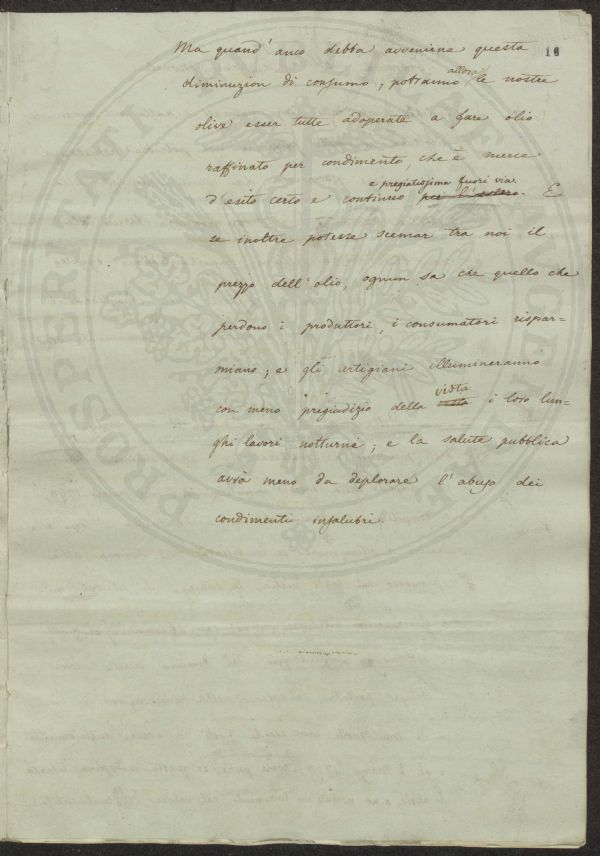 16
Ma quand' anco debba avvenirne questa
allora
diminuzion di consumo, potranno le nostre
olive esser tutte adoperate a fare olio
raffinato per condimento, che è merce
e pregiatissima fuori via
d'esito certo e continuo per l'estero. E
se inoltre potesse scemar tra noi il
prezzo dell' olio, ognun sa che quello che
perdono i produttori, i consumatori rispar=
miano; e gli artigiani illumineranno
vista
con meno pregiudizio della i loro lun=
ghi lavori notturni; e la salute pubblica
avrà meno da deplorare l'abuso dei
condimenti insalubri.